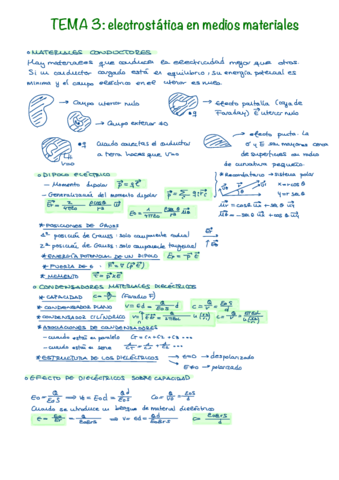 TEMA 3: electrostática en medios materiales
MATERIALES CONDUCTORES
Hay materiales que conducen la electricidad mejor que otros.
Si un conductor cargado está en equilibrio, su energía potencial es
mínima y el campo eléctrico en el interior es nulo.
→ Campo interior nulo
→ efecto pantalla (caja de
Faraday) E interior nulo
→ Campo exterior ≠0
Cuando conectas el conductor
a tierra haces que V=0
→ efecto punta: la
σ y E son mayores cerca
de superficies con radios
de curvatura pequeños.
DIPOLO ELÉCTRICO
- Momento dipolar
- Generalización del momento dipolar
* Recordatorio → sistema polar
x = r cos θ
y = r sen θ
* POSICIONES DE GAUSS
1ª posición de Gauss: solo componente radial
2ª posición de Gauss: solo componente tangencial
* ENERGÍA POTENCIAL DE UN DIPOLO
* FUERZA DE E
* MOMENTO
CONDENSADORES MATERIALES DIELÉCTRICOS
* CAPACIDAD C = Q/V (Faradio F)
* CONDENSADOR PLANO
* CONDENSADOR CILÍNDRICO
* ASOCIACIONES DE CONDENSADORES
- cuando están en paralelo
- cuando están en serie
* ESTRUCTURA DE LOS DIELÉCTRICOS → E=0 → despolarizado
E≠0 → polarizado
EFECTO DE DIELÉCTRICOS SOBRE CAPACIDAD
Cuando se introduce un bloque de material dieléctrico